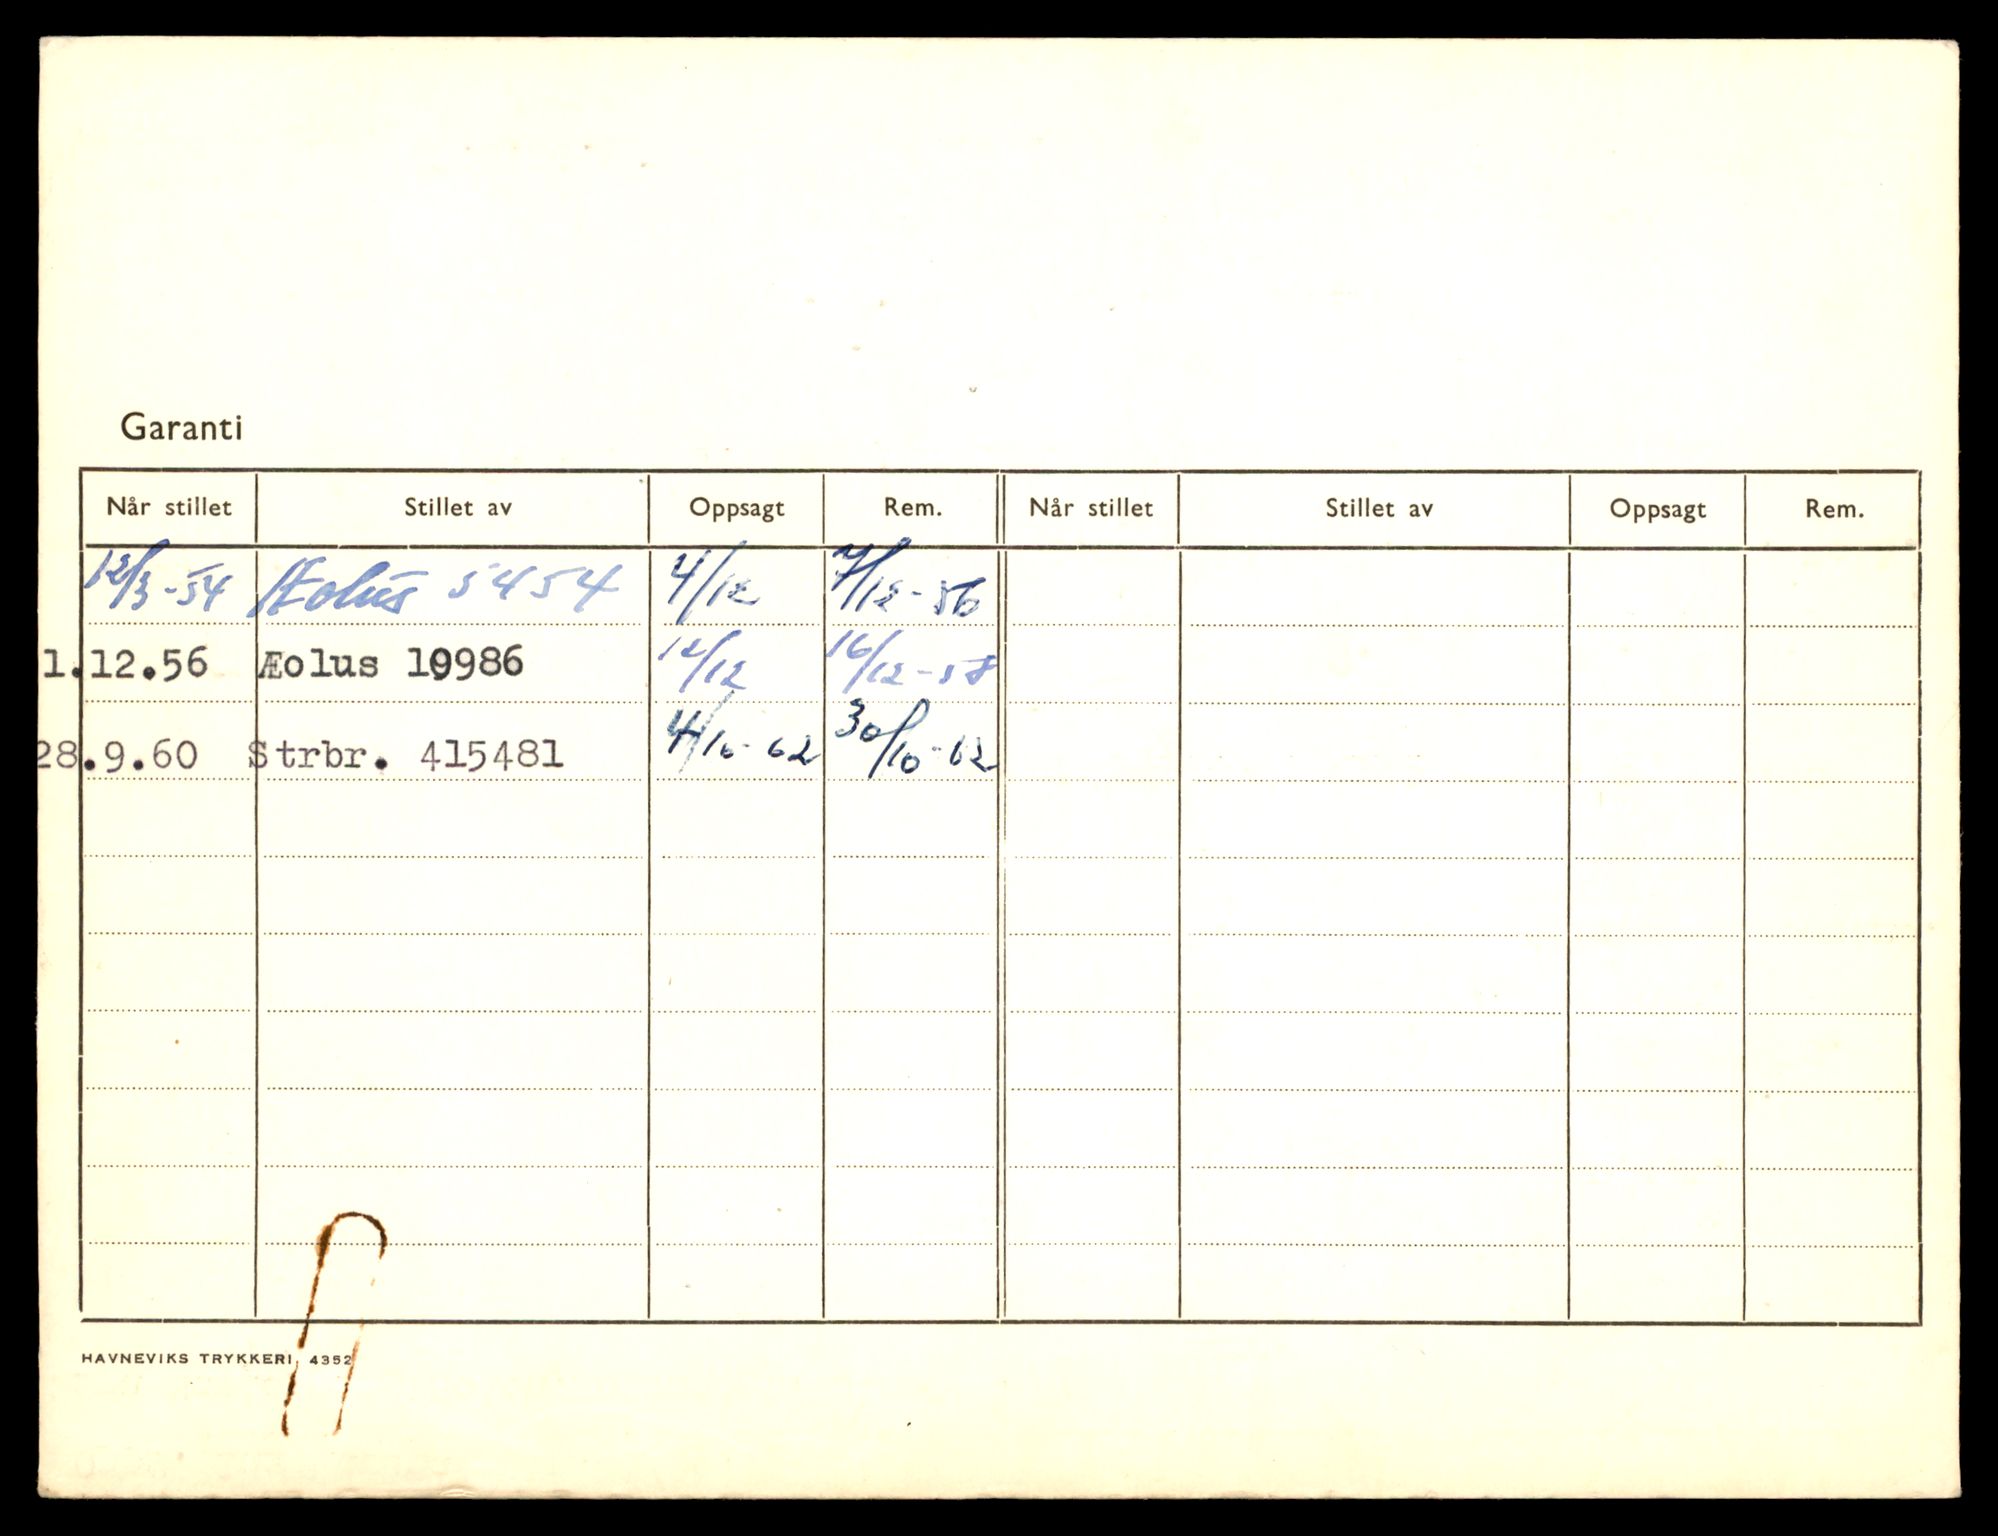 Garanti
Når stillet Stillet av Oppsagt Rem. Når stillet Stillet av Oppsagt Rem.
12/3-54 Æolus 5454 4/12 7/12-56
1.12.56 Æolus 19986 12/12 16/12-58
28.9.60 Strbr. 415481 4/10-62 30/10-62
HAVNEVIKS TRYKKERI 4352